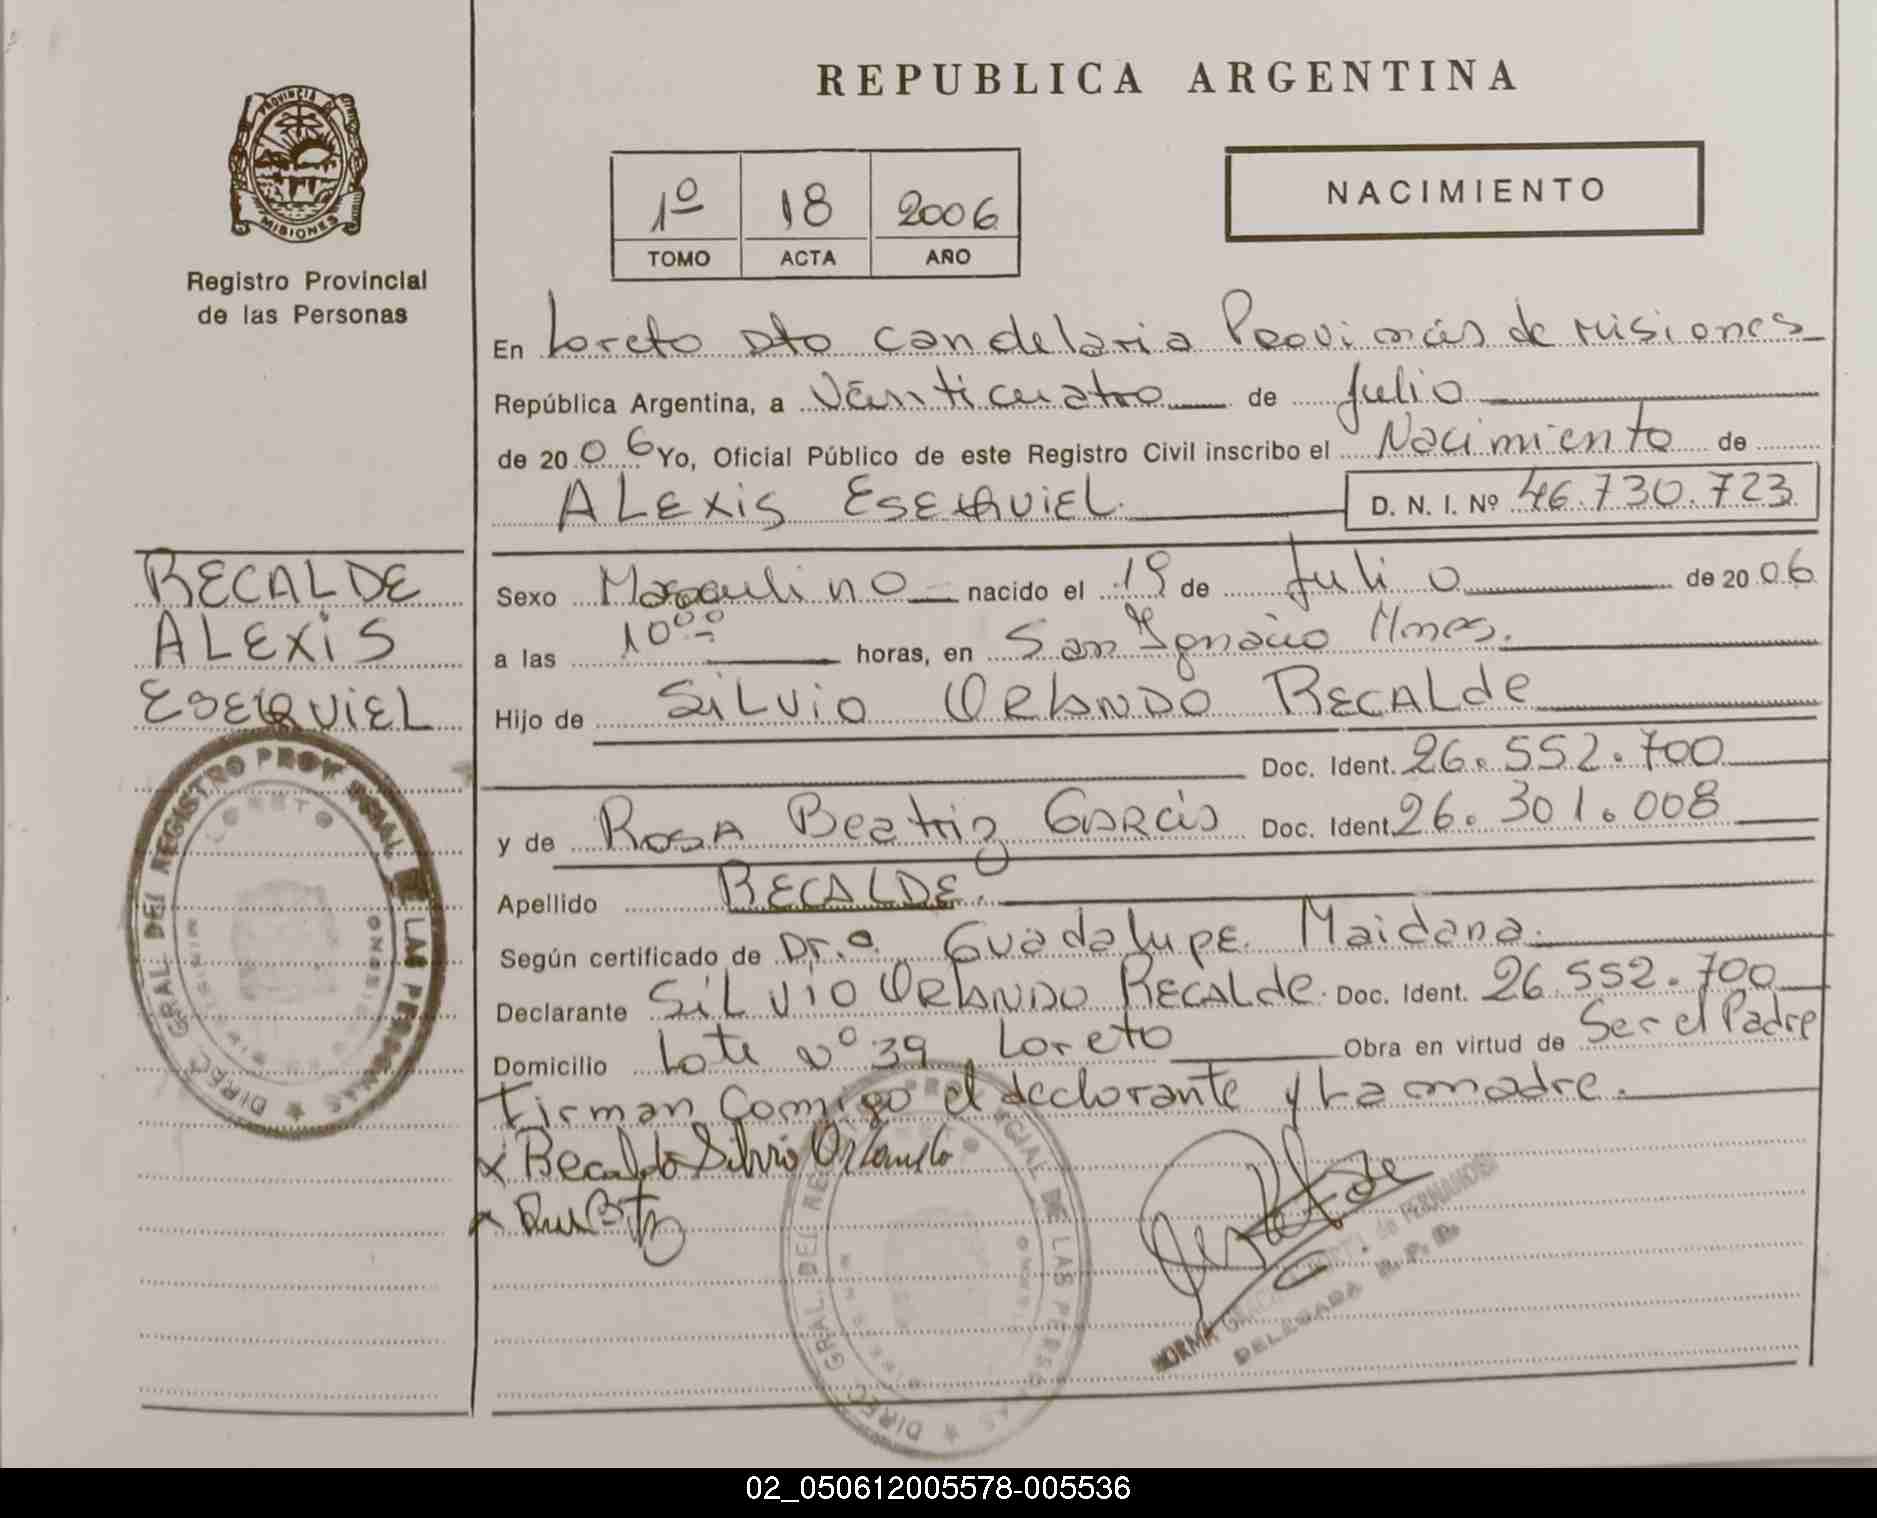 REPUBLICA ARGENTINA
PROVINCIA DE
MISIONES
Registro Provincial
de las Personas
1º 18 2006
TOMO ACTA AÑO
NACIMIENTO
En Loreto Dto Candelaria Provincias de Misiones
República Argentina, a Veinticuatro de Julio
de 2006 Yo, Oficial Público de este Registro Civil inscribo el Nacimiento de
ALEXIS ESEQUIEL. D. N. I. Nº 46.730.723
RECALDE
ALEXIS
ESEQUIEL
Sexo Masculino nacido el 19 de Julio de 2006
a las 10ºº horas, en San Ignacio Mnes.
Hijo de SILVIO ORLANDO RECALDE
Doc. Ident. 26.552.700
y de ROSA Beatriz GARCIA Doc. Ident. 26.301.008
Apellido RECALDE.
Según certificado de Dr.a. Guadalupe Maidana.
Declarante SILVIO ORLANDO RECALDE. Doc. Ident. 26.552.700
Domicilio Lote Nº 39, Loreto Obra en virtud de Ser el Padre
Firman Comigo el declarante y La madre.
x Recalde Silvio Orlando
x
DIREC. GRAL. DEL REGISTRO PROVINCIAL DE LAS PERSONAS
LORETO
MISIONES
DIREC. GRAL. DEL PERSONAS
NORMA de FERNANDEZ
DELEGADA R. P. P.
02_050612005578-005536